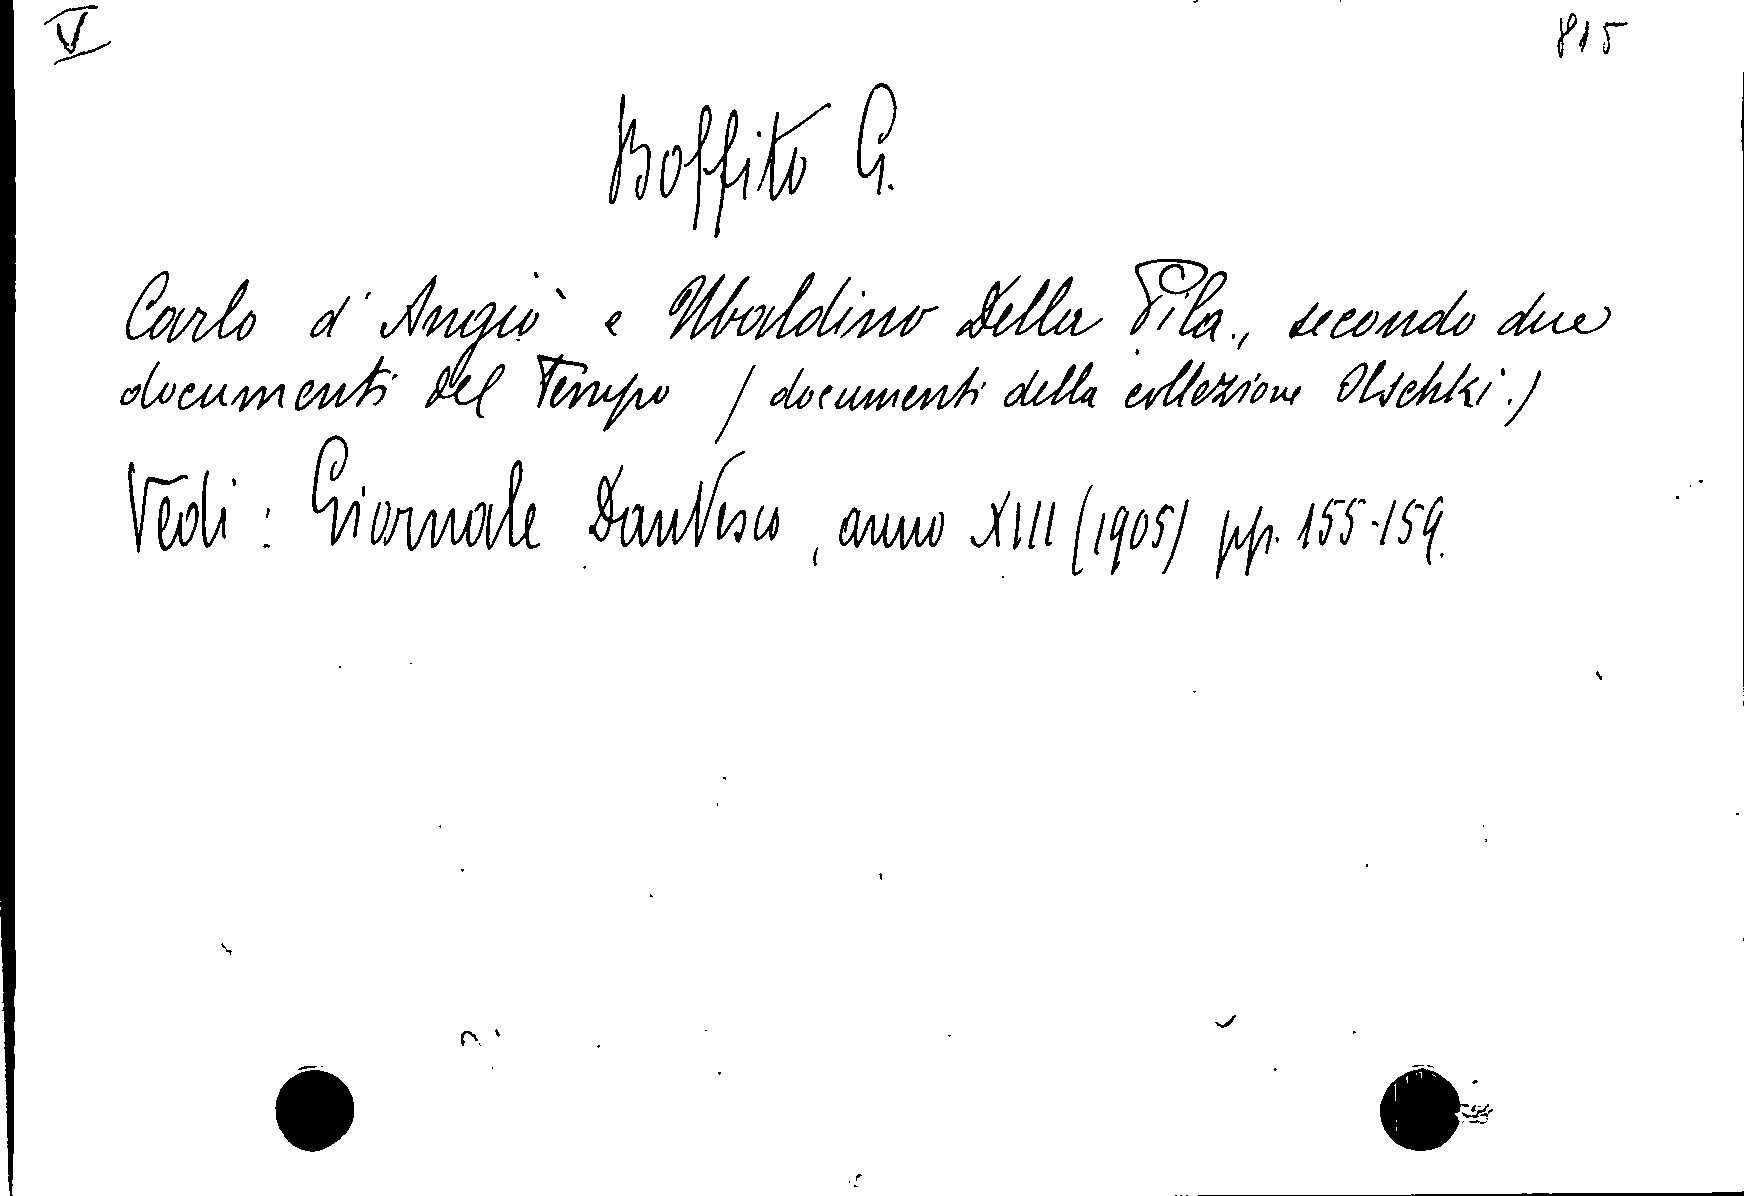 V 815
Boffito G.
Carlo d'Angiò e Ubaldino Della Pila., secondo due
documenti del Tempo (documenti della collezione Olschki.)
Vedi: Giornale Dantesco, anno XIII (1905) pp. 155-159.